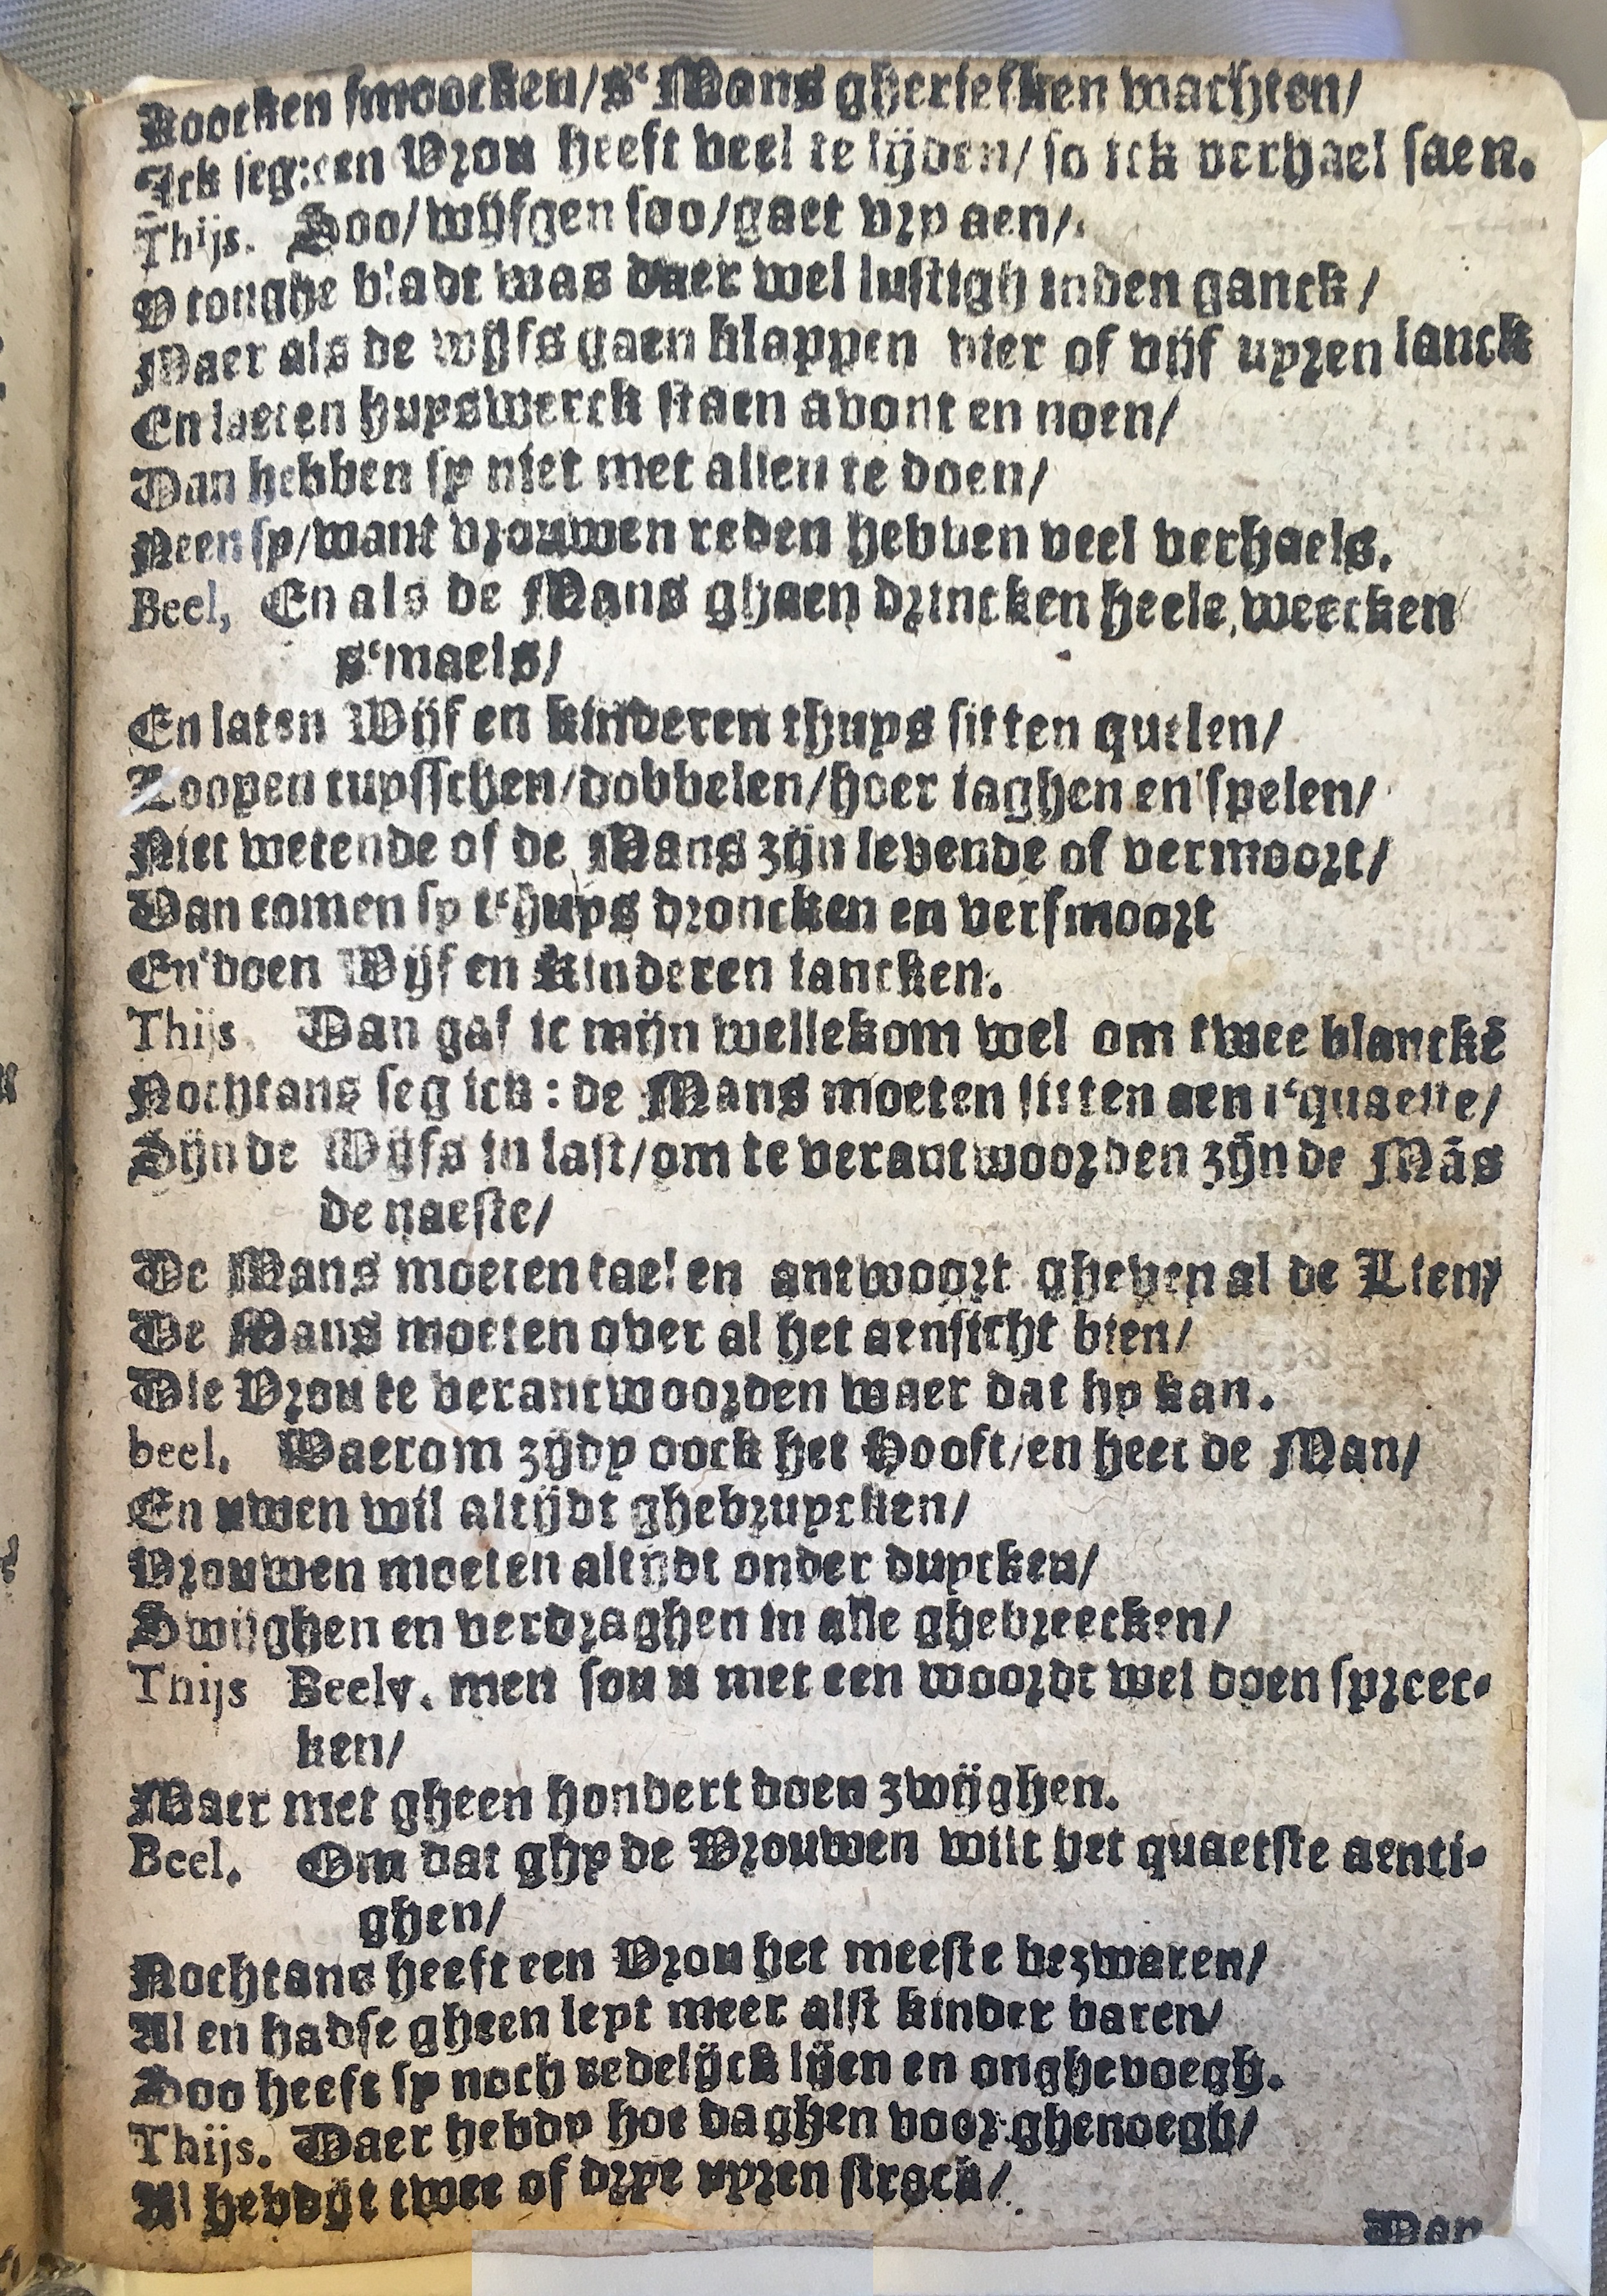 Koocken smoocken/s‘Mans gheriefken wachten/
Ick seg: een Vrou heeft veel te lijden/ so ick verhael saen.
Thijs. Soo/wijfgen soo/gaet vry aen/
D tonghe bladt was daer wel lustigh inden ganck/
Maer als de wijfs gaen klappen vier of vijf uyren lanck
En laeten huyswerck staen avont en noen/
Dan hebben sy niet met allen te doen/
Neen sy/want vrouwen reden hebben veel verhaels.
Beel, En als de Mans ghaen drincken heele weecken
s‘maels/
En laten Wijf en kinderen thuys sitten quelen/
Loopen tuysschen/dobbelen/hoer iaghen en spelen/
Niet wetende of de Mans zijn levende of vermoort/
Dan comen sy t‘huys droncken en versmoort
En doen Wijf en Kinderen iancken.
Thijs. Dan gaf ic mijn wellekom wel om twee blanckē
Nochtans seg ick: de Mans moeten sitten aen t‘quaetste/
Sijn de Wijfs in last/om te verantwoorden zijn de Mās
de naeste/
De Mans moeten tael en antwoort gheven al de Lien/
De Mans moeten over al het aensicht bien/
Die Vrou te verantwoorden waer dat hy kan.
beel. Daerom zijdy oock het Hooft/en heet de Man/
En uwen wil altijdt ghebruycken/
Vrouwen moeten altijdt onder duycken/
Swijghen en verdraghen in alle ghebreecken/
Thijs Beely. men sou u met een woordt wel doen spreec-
ken/
Maer met gheen hondert doen zwijghen.
Beel. Om dat ghy de Vrouwen wilt het quaetste aenti-
ghen/
Nochtans heeft een Vrou het meeste bezwaren/
Al en hadse gheen leyt meer alst kinder baren/
Soo heeft sy noch redelijck lijen en onghevoegh.
Thijs. Daer hebdy hoe daghen voor ghenoegh/
Al hebdijt twee of drye uyren strack/
Dan